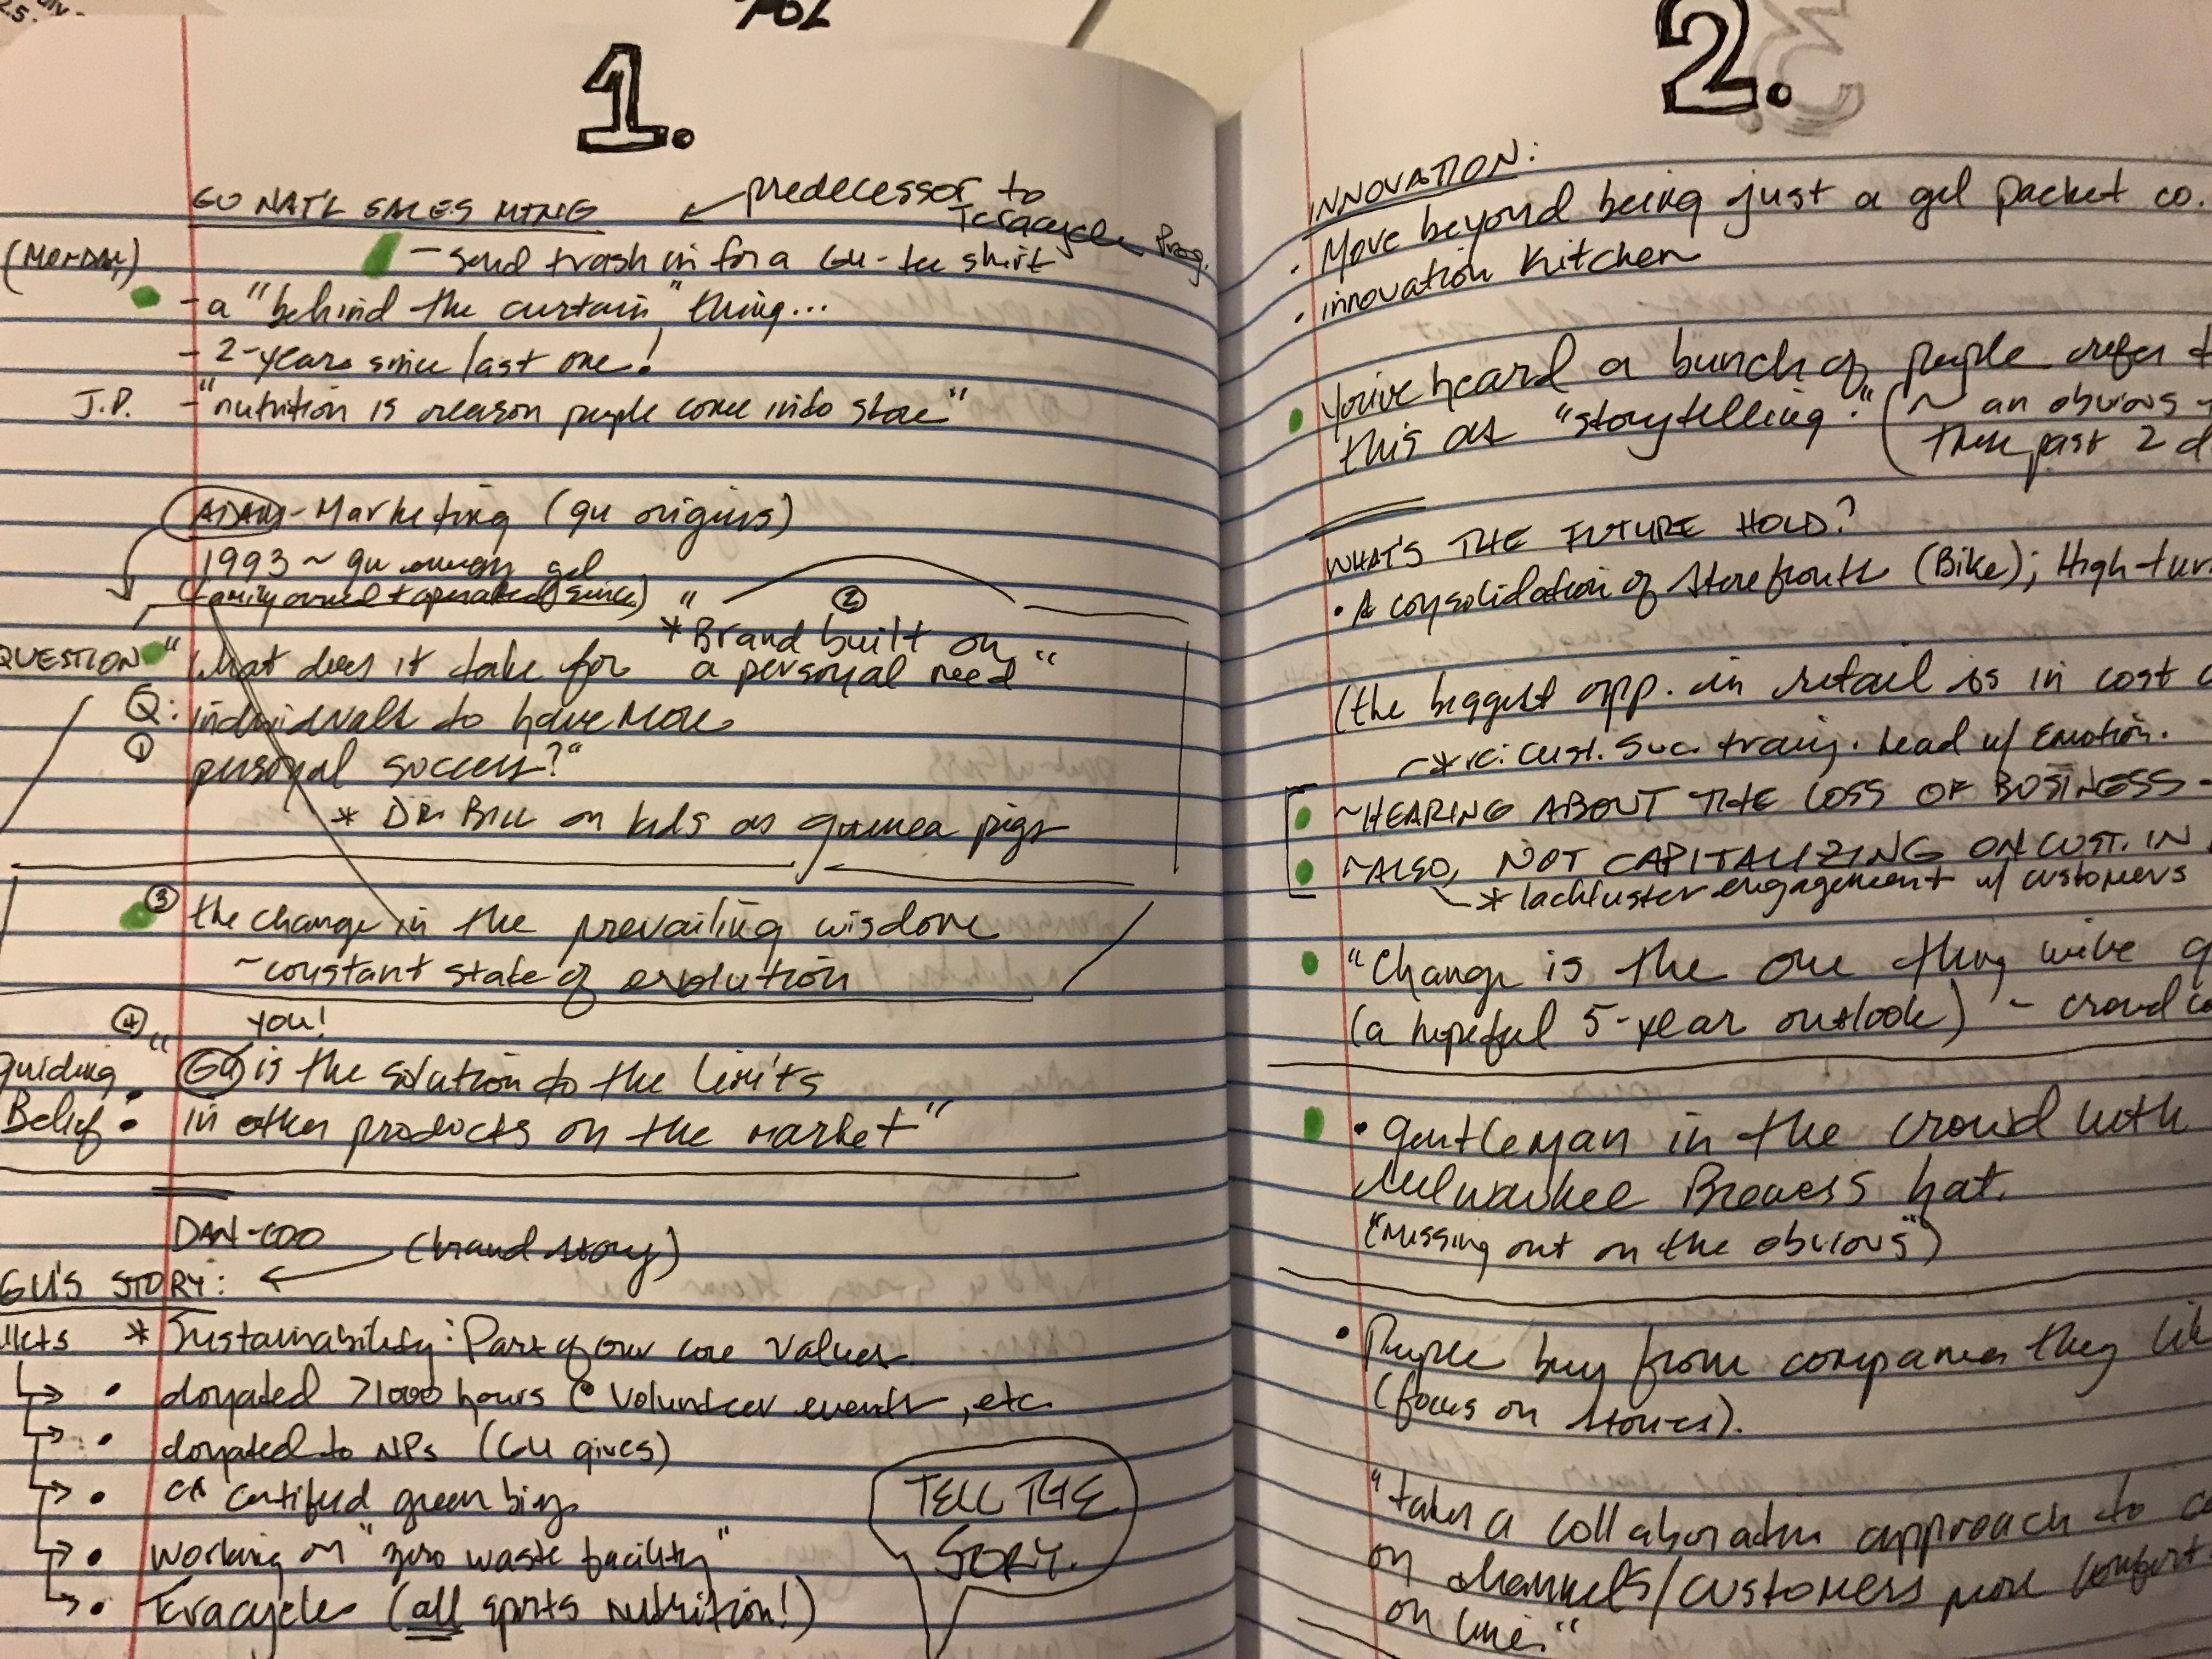 1.
GU NAT'L SALES MTNG
predecessor to
Teracycle Prog.
(MONDAY)
- send trash in for a GU-tee shirt
- a "behind the curtain" thing...
- 2-years since last one!
J.P. - "nutrition is reason people come into store"
ADAM - Marketing (gu origins)
1993 ~ gu energy gel
(family owned + operated since)
②
"*Brand built on
a personal need"
QUESTION "What does it take for
Q: individuals to have more
① personal success?"
* DR. BILL on kids as guinea pigs
③ the change in the prevailing wisdom
~constant state of evolution
you!
④ "GU is the solution to the limits
guiding
Belief: in other products on the market"
DAN - COO (brand story)
GU'S STORY:
* Sustainability: Part of our core values
• donated >1000 hours @ volunteer events, etc.
• donated to NPs (GU gives)
• CA certified green biz.
• working on "zero waste facility"
• Teracycle (all sports nutrition!)
TELL THE
STORY.
2.
INNOVATION:
• Move beyond being just a gel packet co.
• innovation kitchen
You've heard a bunch of people refer
this as "storytelling." (~ an obvious
these past 2
WHAT'S THE FUTURE HOLD?
• A consolidation of storefronts (Bike); High
(the biggest opp. in retail is in cost
~*re: cust. Lead w/ Emotion.
~HEARING ABOUT THE LOSS OF BUSINESS -
~ALSO, NOT CAPITALIZING ON CUST. IN
* lackluster engagement w/ customers
"Change is the one thing we've
(a hopeful 5-year outlook) - crowd
• gentleman in the crowd with
Milwaukee Brewers hat.
("missing out on the obvious")
• People buy from companies they
(focus on stories).
"take a collaborative approach to
on channels/customers more
on line."